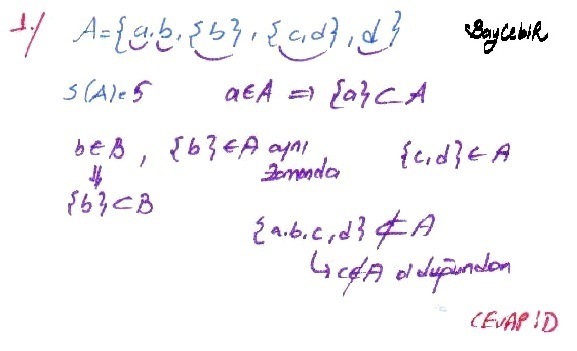 1-/ A = {a, b, {b}, {c, d}, d} BayCebiR
S(A)=5 a∈A ⇒ {a}⊂A
b∈B, {b}∈A aynı zamanda {c,d}∈A
⇓
{b}⊂B
{a,b,c,d} ⊄ A
↳ c∉A olduğundan
CEVAP: D